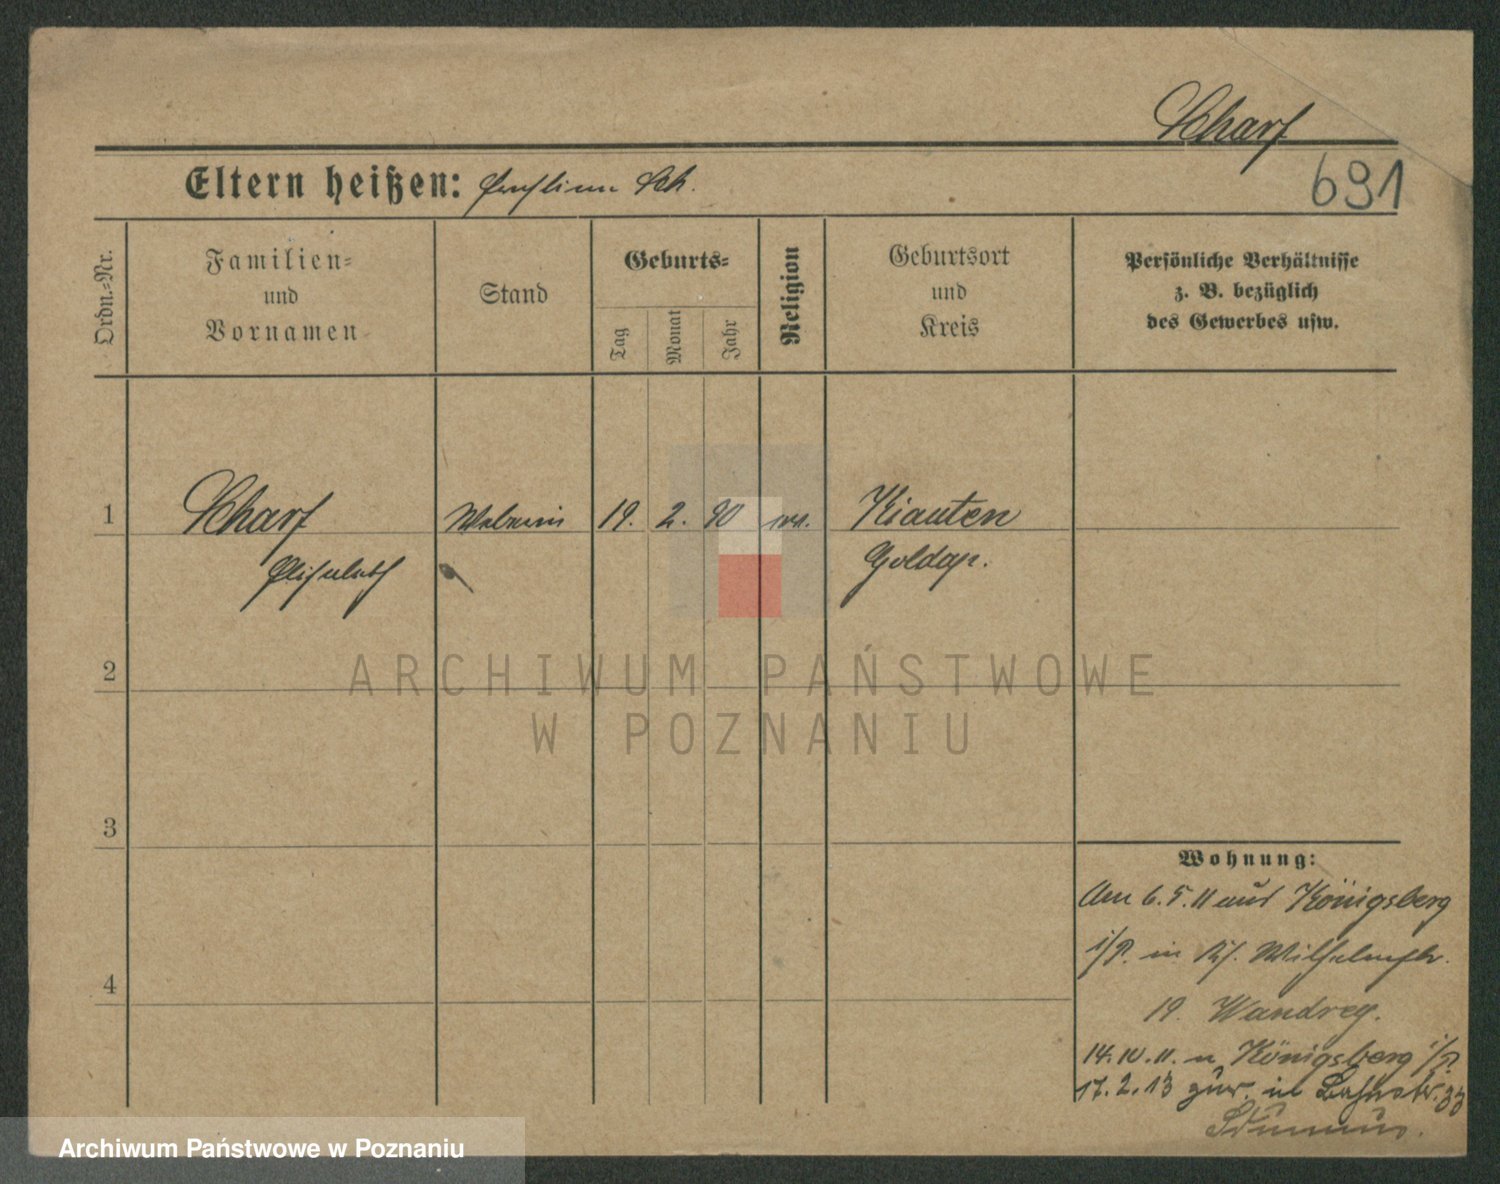 Scharf
Eltern heißen: Sch.
691
Ordn.-Nr.
Familien-
und
Vornamen
Stand
Geburts-
Tag
Monat
Jahr
Religion
Geburtsort
und
Kreis
Persönliche Verhältnisse
z. B. bezüglich
des Gewerbes usw.
1
Scharf
19. 2. 90
Kiauten
Elisabeth
Goldap.
2
ARCHIWUM PAŃSTWOWE
W POZNANIU
3
Wohnung:
Am 6. 5. 11 aus Königsberg
i/P. in Wilhelmstr.
4
19. Wandreg.
14. 10. 11. n Königsberg i/P.
17. 2. 13 zur. in Bahnstr. 33
Archiwum Państwowe w Poznaniu